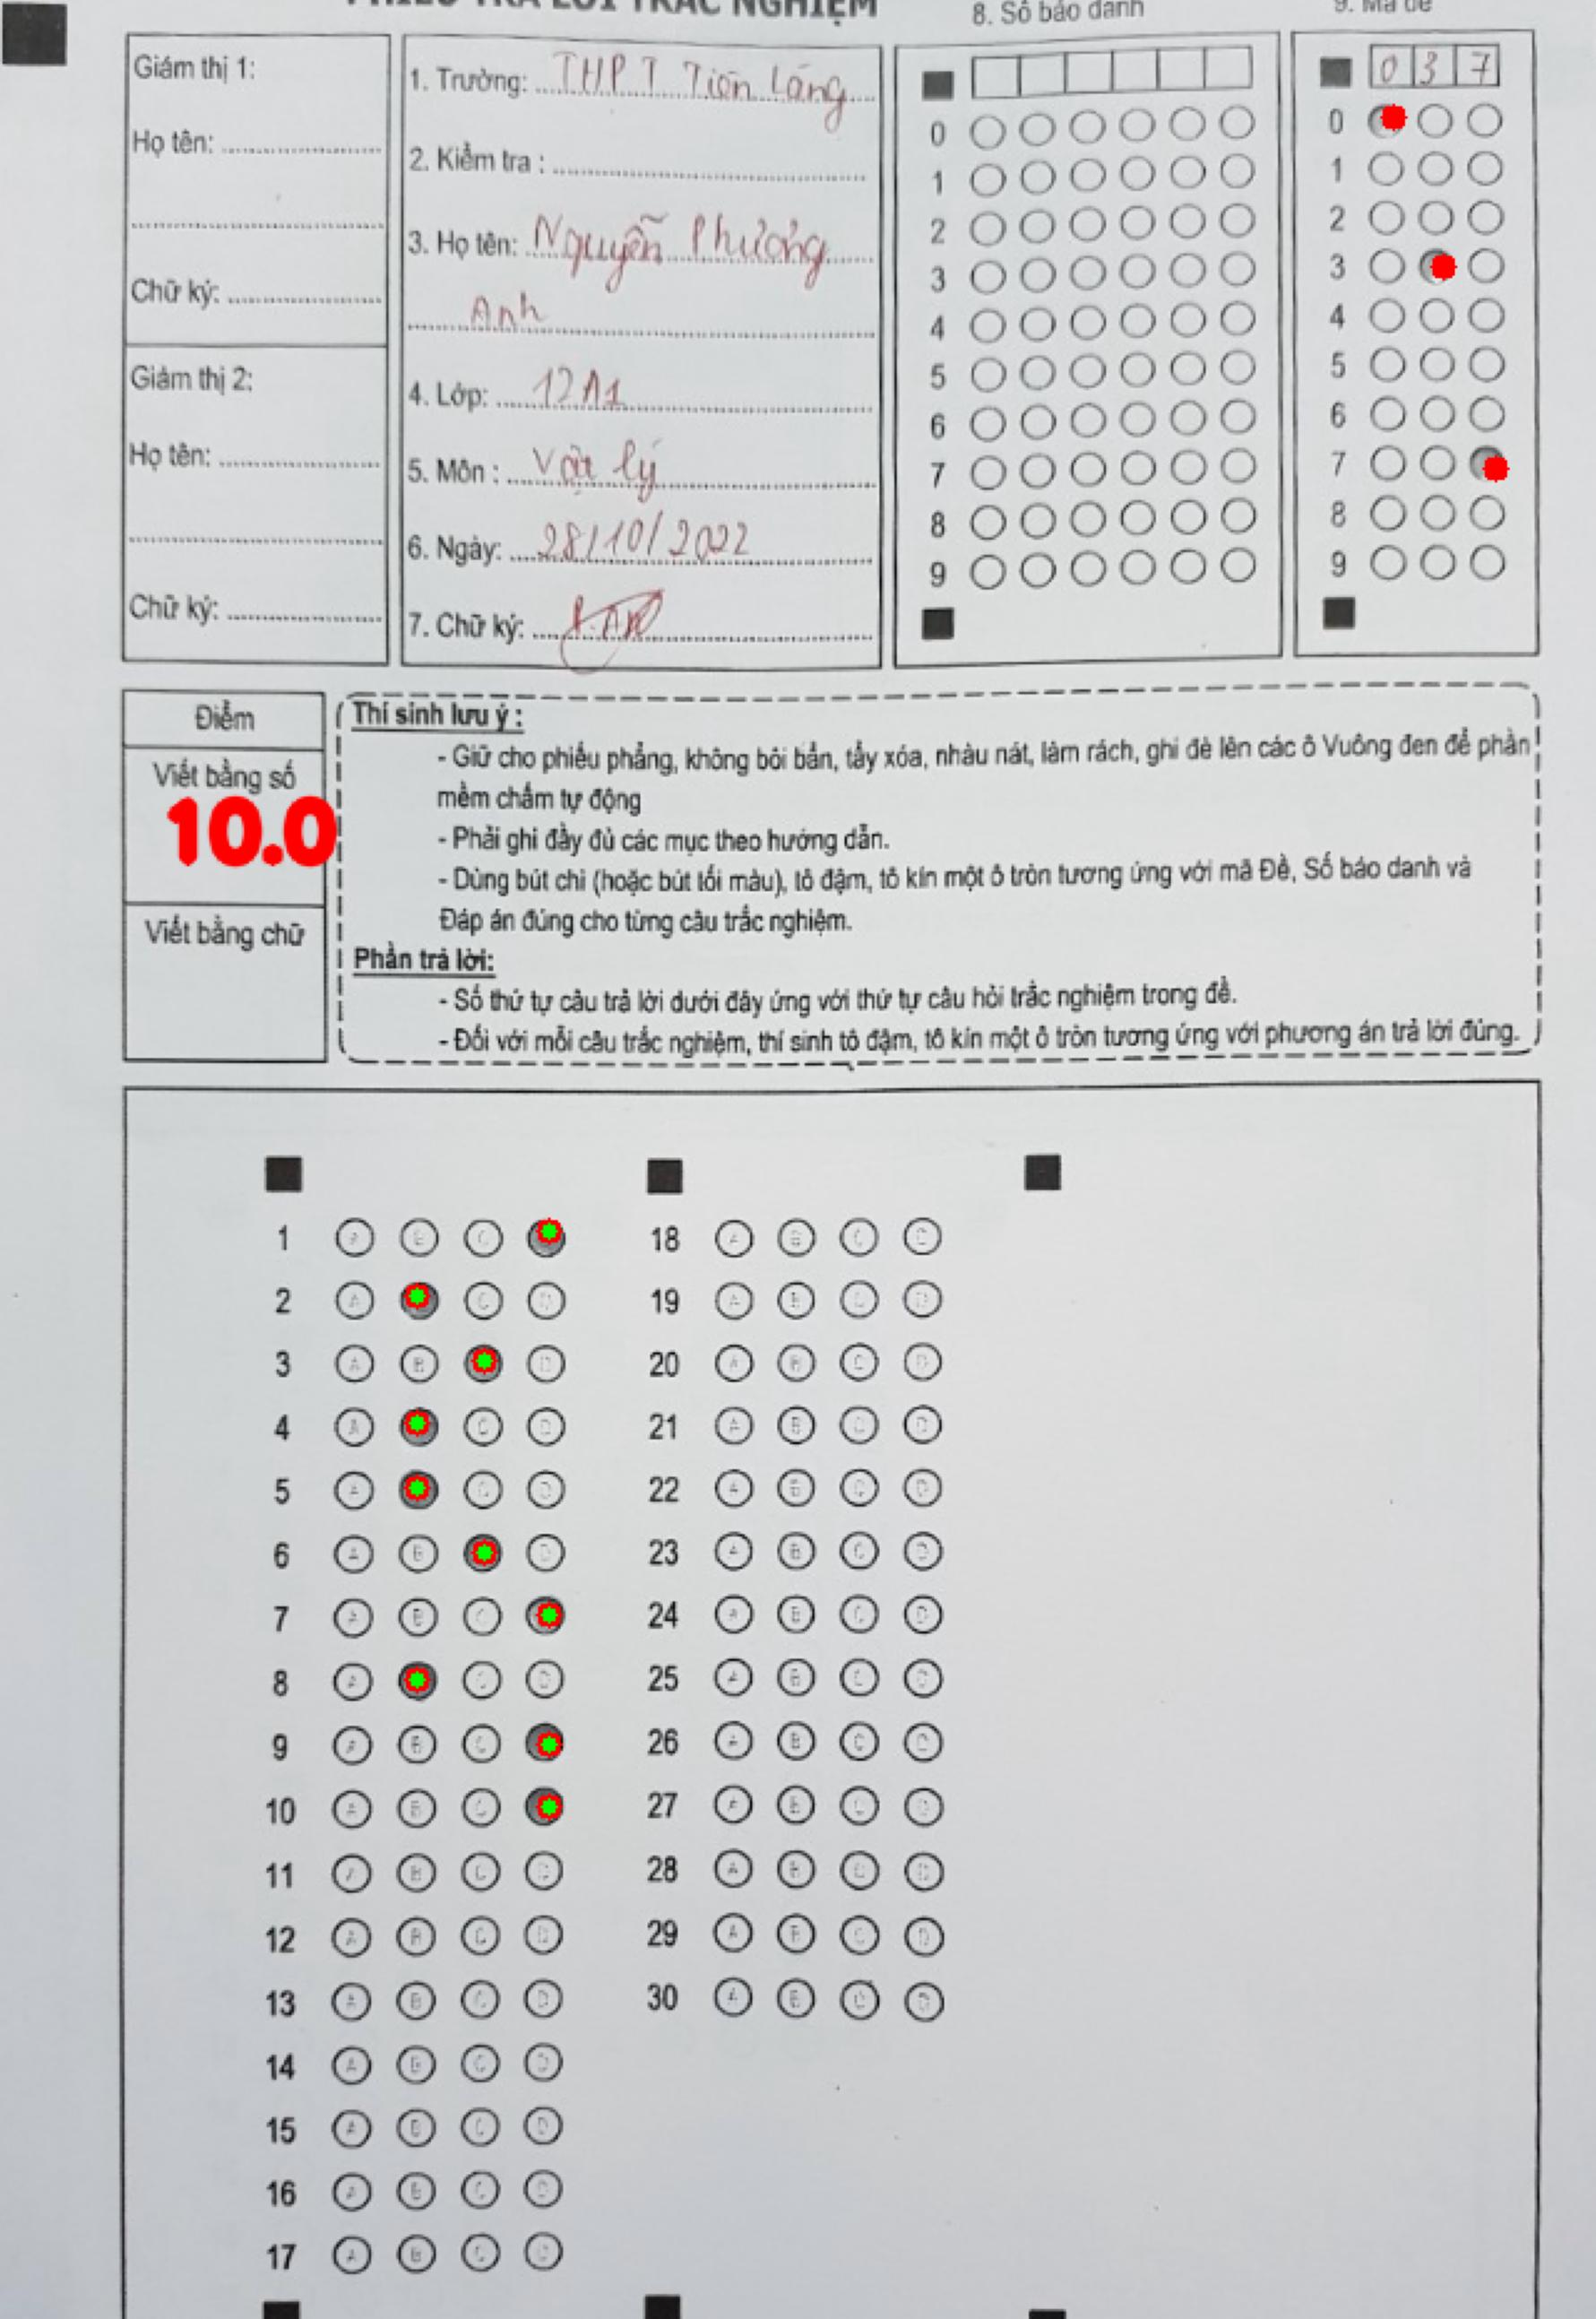 PHIẾU TRẢ LỜI TRẮC NGHIỆM
8. Số báo danh
9. Mã đề
Giám thị 1:
Họ tên:
Chữ ký:
Giám thị 2:
Họ tên:
Chữ ký:
1. Trường: THPT Tiên Lãng
2. Kiểm tra :
3. Họ tên: Nguyễn Phương
Anh
4. Lớp: 12A1
5. Môn : Vật lý
6. Ngày: 28/10/2022
7. Chữ ký:
0
1
2
3
4
5
6
7
8
9
0 3 7
0
1
2
3
4
5
6
7
8
9
Điểm
Viết bằng số
10.0
Viết bằng chữ
Thí sinh lưu ý :
- Giữ cho phiếu phẳng, không bôi bẩn, tẩy xóa, nhàu nát, làm rách, ghi đè lên các ô Vuông đen để phần
mềm chấm tự động
- Phải ghi đầy đủ các mục theo hướng dẫn.
- Dùng bút chì (hoặc bút tối màu), tô đậm, tô kín một ô tròn tương ứng với mã Đề, Số báo danh và
Đáp án đúng cho từng câu trắc nghiệm.
Phần trả lời:
- Số thứ tự câu trả lời dưới đây ứng với thứ tự câu hỏi trắc nghiệm trong đề.
- Đối với mỗi câu trắc nghiệm, thí sinh tô đậm, tô kín một ô tròn tương ứng với phương án trả lời đúng.
1 A B C
2 A C D
3 A B D
4 A C D
5 A C D
6 A B D
7 A B C
8 A C D
9 A B C
10 A B C
11 A B C D
12 A B C D
13 A B C D
14 A B C D
15 A B C D
16 A B C D
17 A B C D
18 A B C D
19 A B C D
20 A B C D
21 A B C D
22 A B C D
23 A B C D
24 A B C D
25 A B C D
26 A B C D
27 A B C D
28 A B C D
29 A B C D
30 A B C D